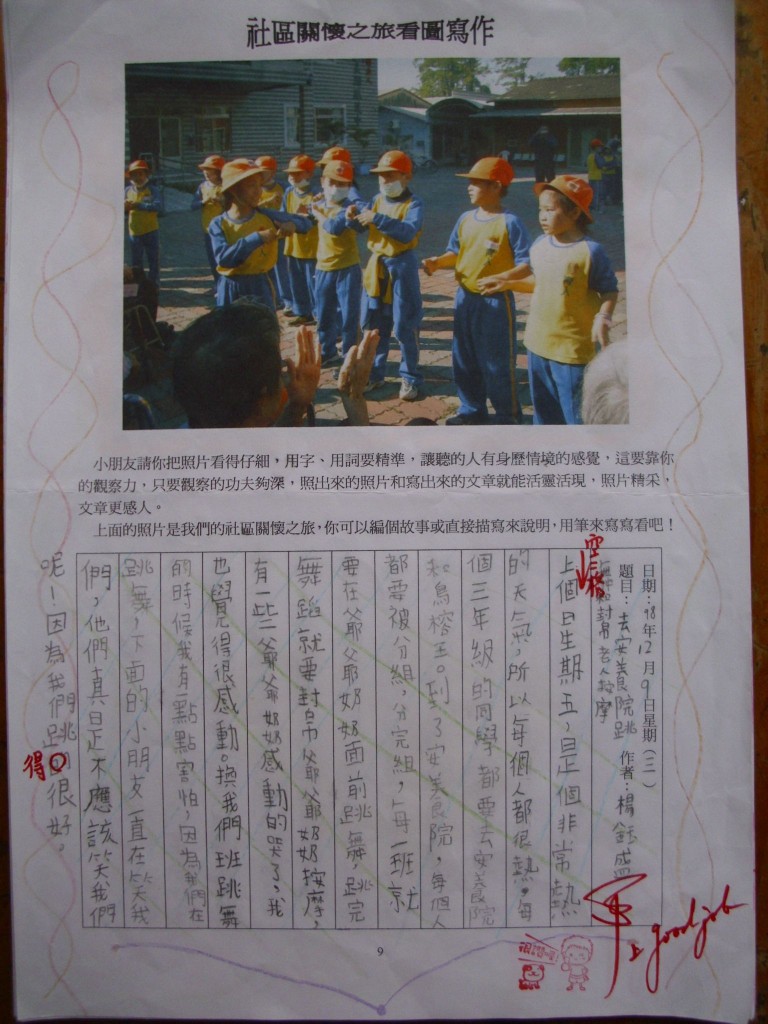 社區關懷之旅看圖寫作
小朋友請你把照片看得仔細，用字、用詞要精準，讓聽的人有身歷情境的感覺，這要靠你
的觀察力，只要觀察的功夫夠深，照出來的照片和寫出來的文章就能活靈活現，照片精采，
文章更感人。
上面的照片是我們的社區關懷之旅，你可以編個故事或直接描寫來說明，用筆來寫寫看吧！
日期：98年12月9日星期(三)
題目：去安養院跳
作者：楊
舞和封帛老人按摩
空一格
上個星期五，是個非常熱
的天氣，所以每個人都很熱，每
個三年級的同學都要去安養院
和鳥榕王。到了安養院，每個人
都要被分組，分完組，每一班就
要在爺爺奶奶面前跳舞，跳完
舞蹈就要封帛爺爺奶奶按摩，
有一些爺爺奶奶感動的哭了，我
也覺得很感動。換我們班跳舞
的時候我有一點點害怕，因為我們在
跳舞，下面的小朋友一直在笑我
們，他們真是不應該笑我們
呢！因為我們跳的很好。
得
甲上 good job
9